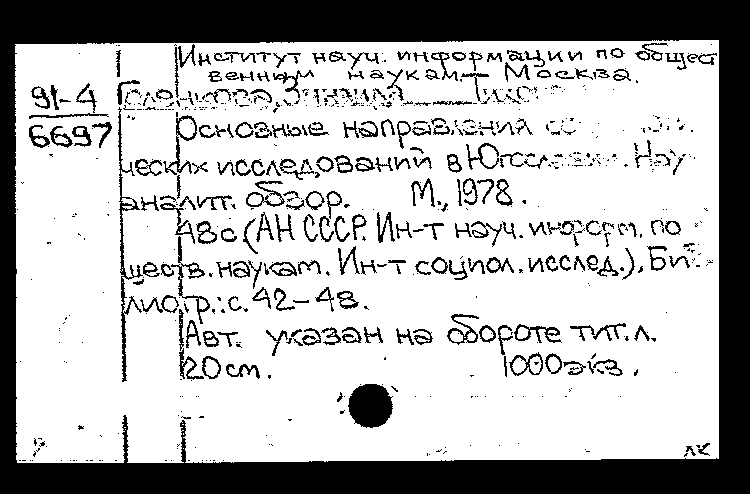 Институт науч. информации по общест
венным наукам.— Москва.
91-4
6697
Голенкова, Зинаида
Основные направления
ческих исследований в Югославии. Нау
аналит. обзор. М., 1978.
48с (АН СССР. Ин-т науч. информ. по
ществ. наукам. Ин-т социол. исслед.), Би
лиогр.: с. 42-48.
Авт. указан на обороте тит. л.
20см. 1000экз.
лк